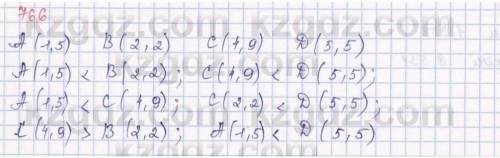 766
A(1,5) B(2,2) C(4,9) D(5,5)
A(1,5) < B(2,2); C(4,9) < D(5,5);
A(1,5) < C(4,9); C(2,2) < D(5,5);
C(4,9) > B(2,2); A(1,5) < D(5,5)